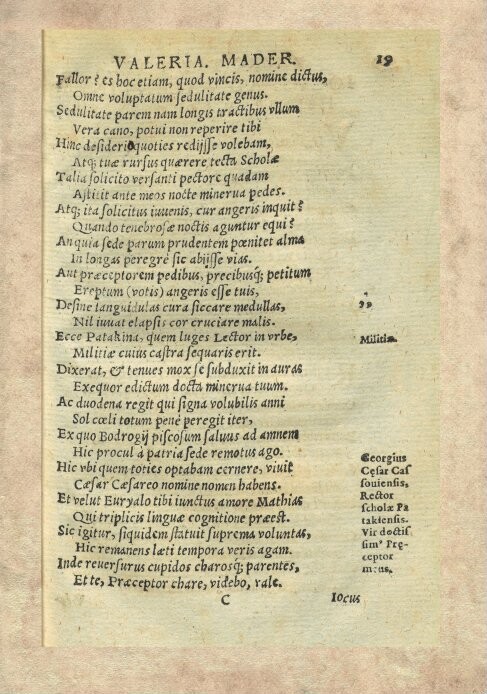 VALERIA. MADER. 19
Fallor? es hoc etiam, quod vincis, nomine dictus,
Omne voluptatum sedulitate genus.
Sedulitate parem nam longis tractibus vllum
Vera cano, potui non reperire tibi
Hinc desiderio quoties redijsse volebam,
Atq; tuæ rursus quærere tecta Scholæ
Talia solicito versanti pectore quadam
Astitit ante meos nocte minerua pedes.
Atq; ita solicitus iuuenis, cur angeris inquit?
Quando tenebrosæ noctis aguntur equi?
An quia sede parum prudentem pœnitet alma
In longas peregrè sic abijsse vias.
Aut præceptorem pedibus, precibusq; petitum
Ereptum (votis) angeris esse tuis,
Desine languidulas cura siccare medullas,
Nil iuuat elapsis cor cruciare malis.
Ecce Patakina, quem luges Lector in vrbe,
Militiæ cuius castra sequaris erit.
Dixerat, & tenues mox se subduxit in auras
Exequor edictum docta minerua tuum.
Ac duodena regit qui signa volubilis anni
Sol cœli totum penè peregit iter,
Ex quo Bodrogij piscosum saluus ad amnem
Hic procul à patria sede remotus ago.
Hic vbi quem toties optabam cernere, viuit
Cæsar Cæsareo nomine nomen habens.
Et velut Euryalo tibi iunctus amore Mathias
Qui triplicis linguæ cognitione præest.
Sic igitur, siquidem statuit suprema voluntas,
Hic remanens læti tempora veris agam.
Inde reuersurus cupidos charosq; parentes,
Et te, Præceptor chare, videbo, vale.
C Iocus
Militiæ.
Georgius
Cęsar Cas
souiensis,
Rector
scholæ Pa
takiensis.
Vir doctis
simꝰ Pręceptor
meus.